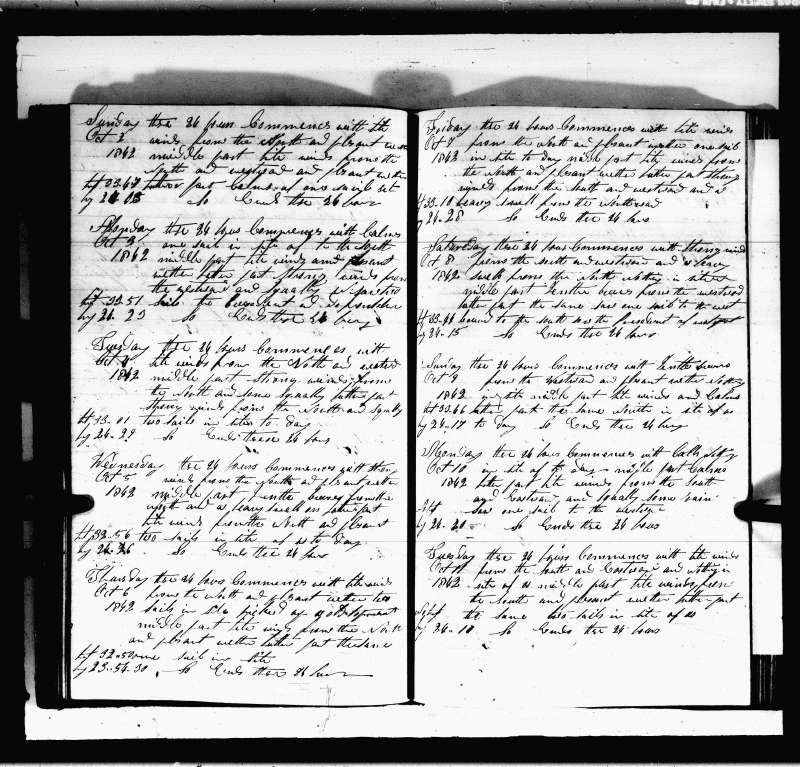 Sunday the 24 hours Commences with lite
Oct 2 winds from the North and plesant wether
1842 middle part lite winds from the
North and westward and plesant wether
Lt 33.47 latter part Calms saw one sail in sit
by 24 05 So Ends the 24 hours
Monday the 24 hours Commences with Calms
Oct 3 one sail in site of to the North
1842 middle part lite winds and plesant
wether latter part strong winds from
the and squally
Lt 33.51 sails the
by 24 23 So Ends the 24 hours
Tuesday the 24 hours Commences with
Oct 4 lite winds from the North and westard
1842 middle part strong winds from
the North and some squally latter part
strong winds from the North and squaly
Lt 33.01 two sails in site to day
by 24.29 So Ends these 24 hours
Wednesday the 24 hours Commences with strong
Oct 5 winds from the North and plesant wether
1842 middle part gentle breeses from the
North and a heavy swell on latter part
lite winds from the North and plesant
Lt 32.56 two sails in site of us to day
by 24.26 So Ends the 24 hours
Thursday the 24 hours Commences with lite winds
Oct 6 from the North and plesant wether two
1842 sails in site picked up a
middle part lite winds from the North
and plesant wether latter part the same
Lt 32.50 one sail in site
by 23-54-30 So Ends the 24 hours
Friday the 24 hours Commences with lite winds
Oct 7 from the North and plesant wether one sail
1842 in site to day middle part lite winds from
the North and plesant wether latter part strong
winds from the south and westward and a
Lt 33.10 heavy swell from the Northward
by 24-28 So Ends the 24 hours
Saturday the 24 hours Commences with strong winds
Oct 8 from the south and westward and a heavy
1842 swell from the North nothing in site
middle part gentle breeses from the westward
latter part the same saw one sail to the west
Lt 33.41 bound to the south was the President of
by 24-15 So Ends these 24 hours
Sunday the 24 hours Commences with gentle breeses
Oct 9 from the westward and plesant wether nothing
1842 in site middle part lite winds and Calms
Lt 33.46 latter part the same North in site of us
by 24-17 to day So Ends the 24 hours
Monday the 24 hours Commences with Calms
Oct 10 in site of to day middle part Calms
1842 latter part lite winds from the South
and Eastward and squaly some rain
Lt saw one sail to the westward
by 24.20 So Ends the 24 hours
Tuesday the 24 hours Commences with lite winds
Oct 11 from the south and Eastward and nothing in
1842 site of us middle part lite winds from
the South and plesant wether latter part
the same two sails in site of us
by 24-10 So Ends the 24 hours